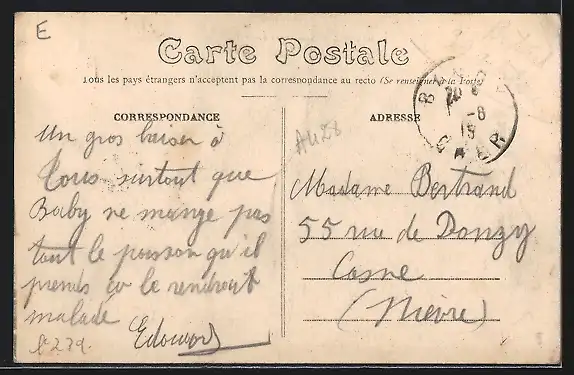 E
Carte Postale
Tous les pays étrangers n'acceptent pas la correspondance au recto (Se renseigner à la Poste)
CORRESPONDANCE
ADRESSE
-8
19
A428
Un gros baiser à
tous surtout que
Baby ne mange pas
tout le poisson qu'il
prends ça le rendrait
malade
Edouard
Madame Bertrand
55 rue de Donzy
Cosne
(Nièvre)